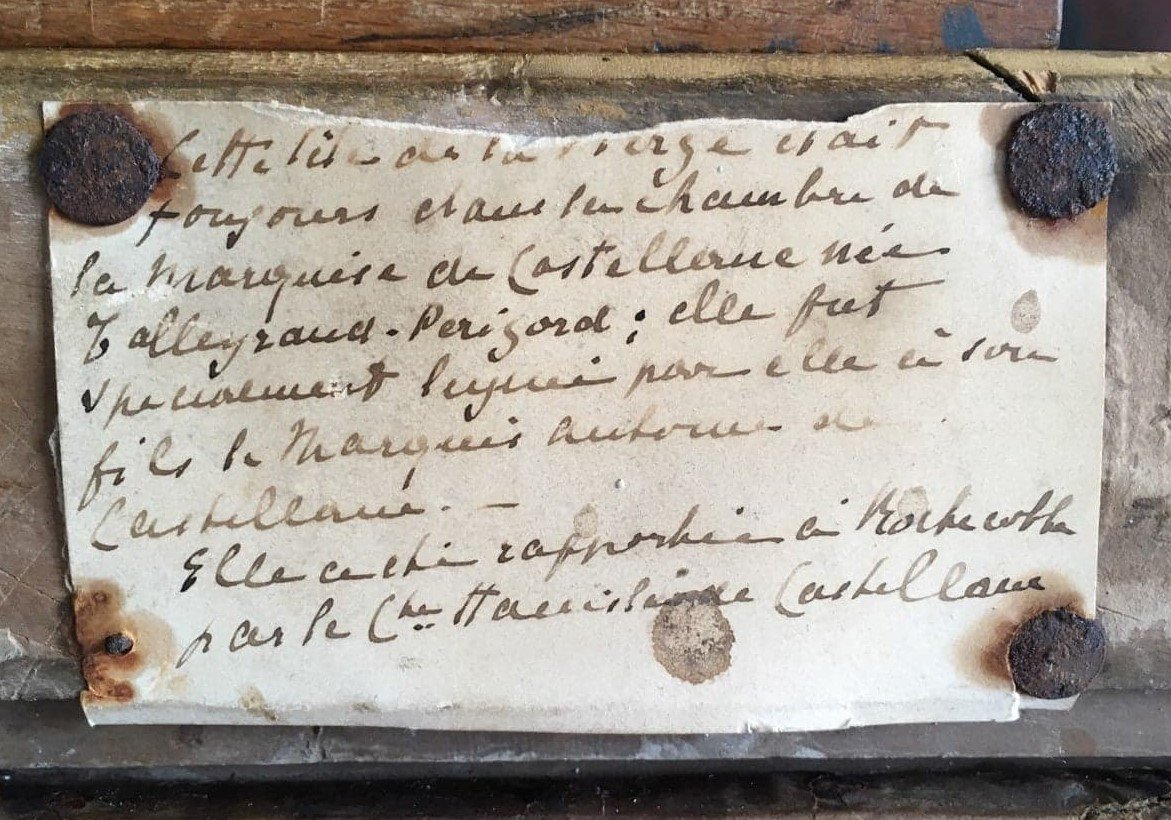 Cette tête de la Vierge était
toujours dans la chambre de
la Marquise de Castellane née
Talleyrand-Périgord; elle fut
specialement léguée par elle à son
fils le Marquis Antoine de
Castellane. —
Elle a été rapportée à Rochecotte
par le Cte Stanislas de Castellane